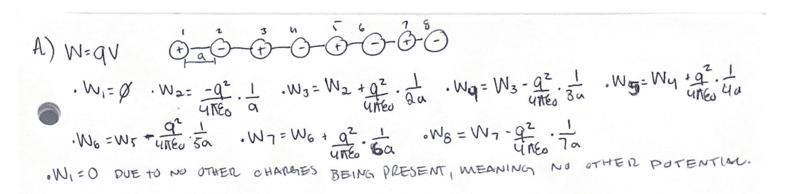 1 2 3 4 5 6 7 8
A) W=qV + - + - + - + -
a
· W₁=∅ · W₂= -q²/4πε₀ · 1/a · W₃= W₂ + q²/4πε₀ · 1/2a · W4= W₃ - q²/4πε₀ · 1/3a · W5= W₄ + q²/4πε₀ · 1/4a
· W₆= W₅ - q²/4πε₀ · 1/5a · W₇= W₆ + q²/4πε₀ · 1/6a · W₈= W₇ - q²/4πε₀ · 1/7a
· W₁=0 DUE TO NO OTHER CHARGES BEING PRESENT, MEANING NO OTHER POTENTIAL.